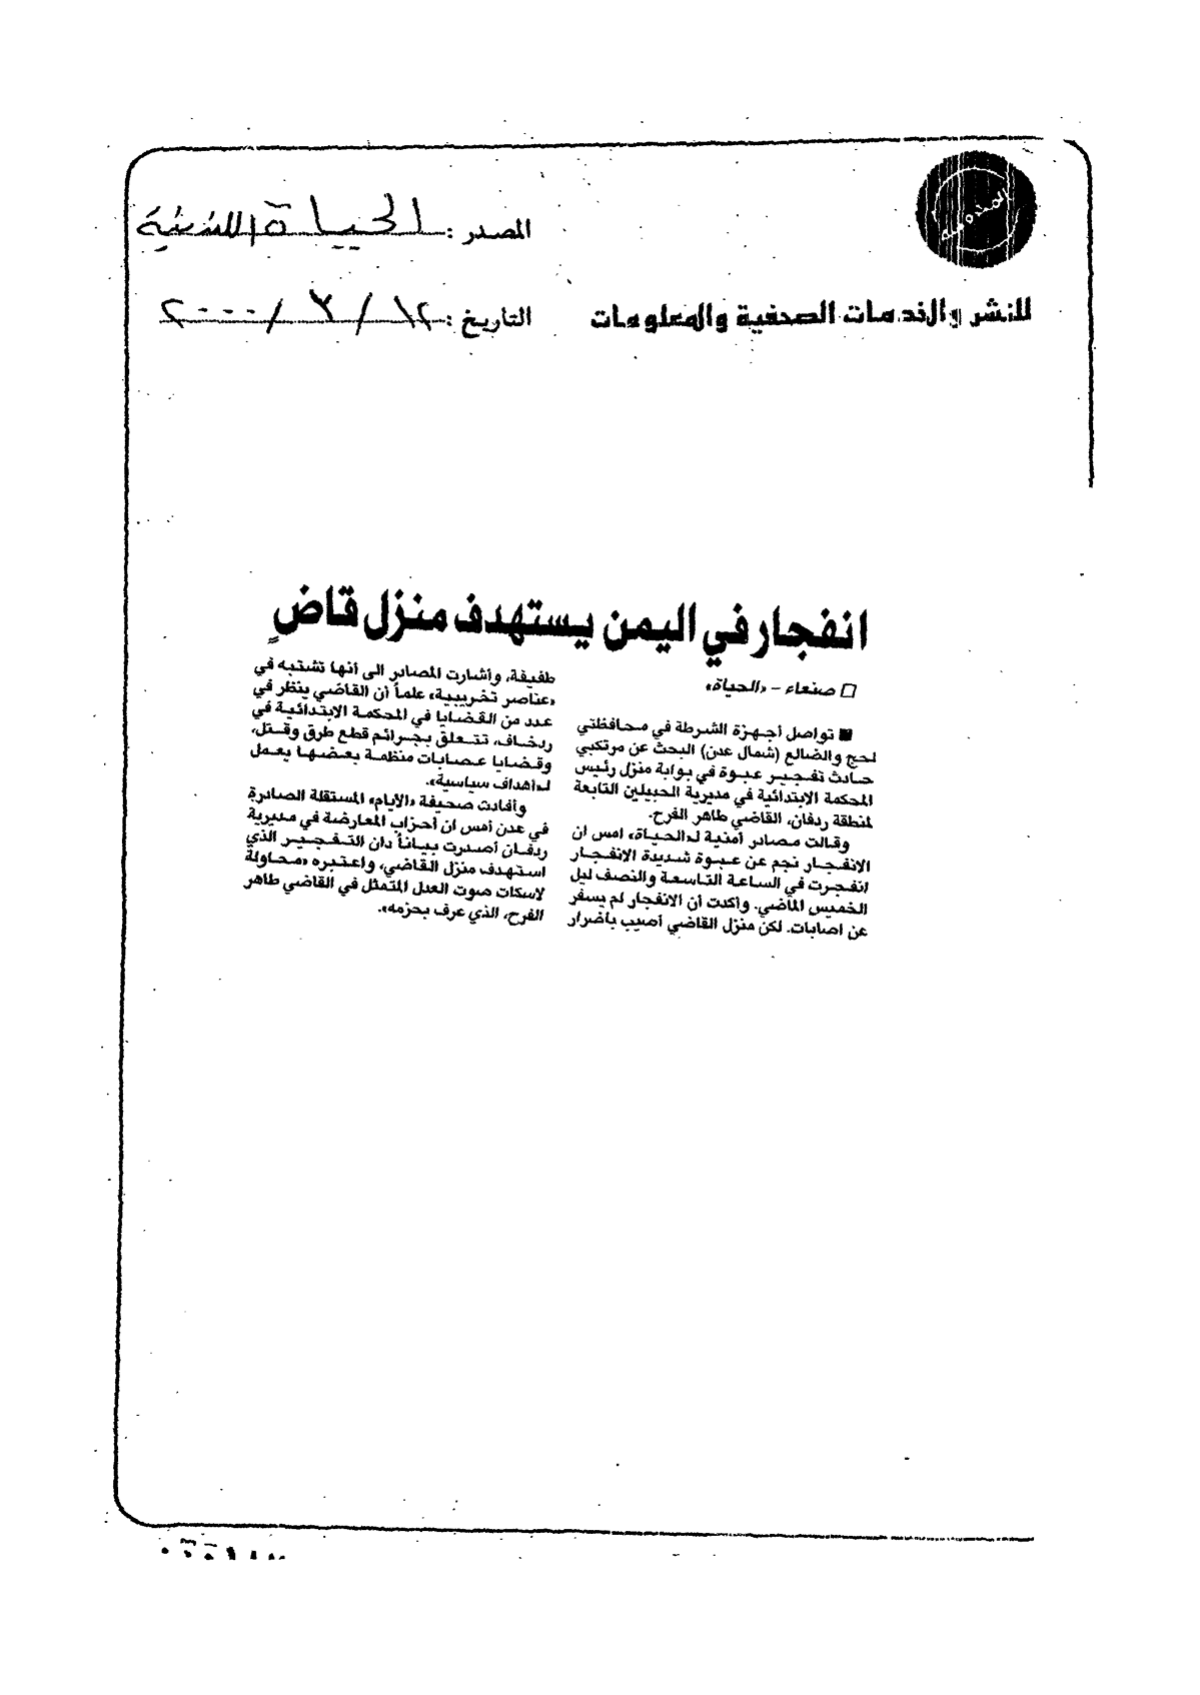 المصدر : الحياة اللندنية
للنشر والخدمات الصحفية والمعلومات
التاريخ : ١٢ / ٣ / ٢٠٠٠
انفجار في اليمن يستهدف منزل قاضٍ
□ صنعاء – «الحياة»
■ تواصل أجهزة الشرطة في محافظتي
لحج والضالع (شمال عدن) البحث عن مرتكبي
حادث تفجير عبوة في بوابة منزل رئيس
المحكمة الابتدائية في مديرية الحبيلين التابعة
لمنطقة ردفان، القاضي طاهر الفرح.
وقالت مصادر أمنية لـ«الحياة» امس ان
الانفجار نجم عن عبوة شديدة الانفجار
انفجرت في الساعة التاسعة والنصف ليل
الخميس الماضي. وأكدت أن الانفجار لم يسفر
عن اصابات. لكن منزل القاضي أصيب باضرار
طفيفة، وأشارت المصادر الى أنها تشتبه في
«عناصر تخريبية» علماً أن القاضي ينظر في
عدد من القضايا في المحكمة الابتدائية في
ردخاف، تتعلق بجرائم قطع طرق وقتل،
وقضايا عصابات منظمة بعضها يعمل
لـ«أهداف سياسية».
وأفادت صحيفة «الأيام» المستقلة الصادرة
في عدن أمس ان أحزاب المعارضة في مديرية
ردفان أصدرت بياناً دان التفجير الذي
استهدف منزل القاضي، واعتبره «محاولة
لاسكات صوت العدل المتمثل في القاضي طاهر
الفرح، الذي عرف بحزمه».